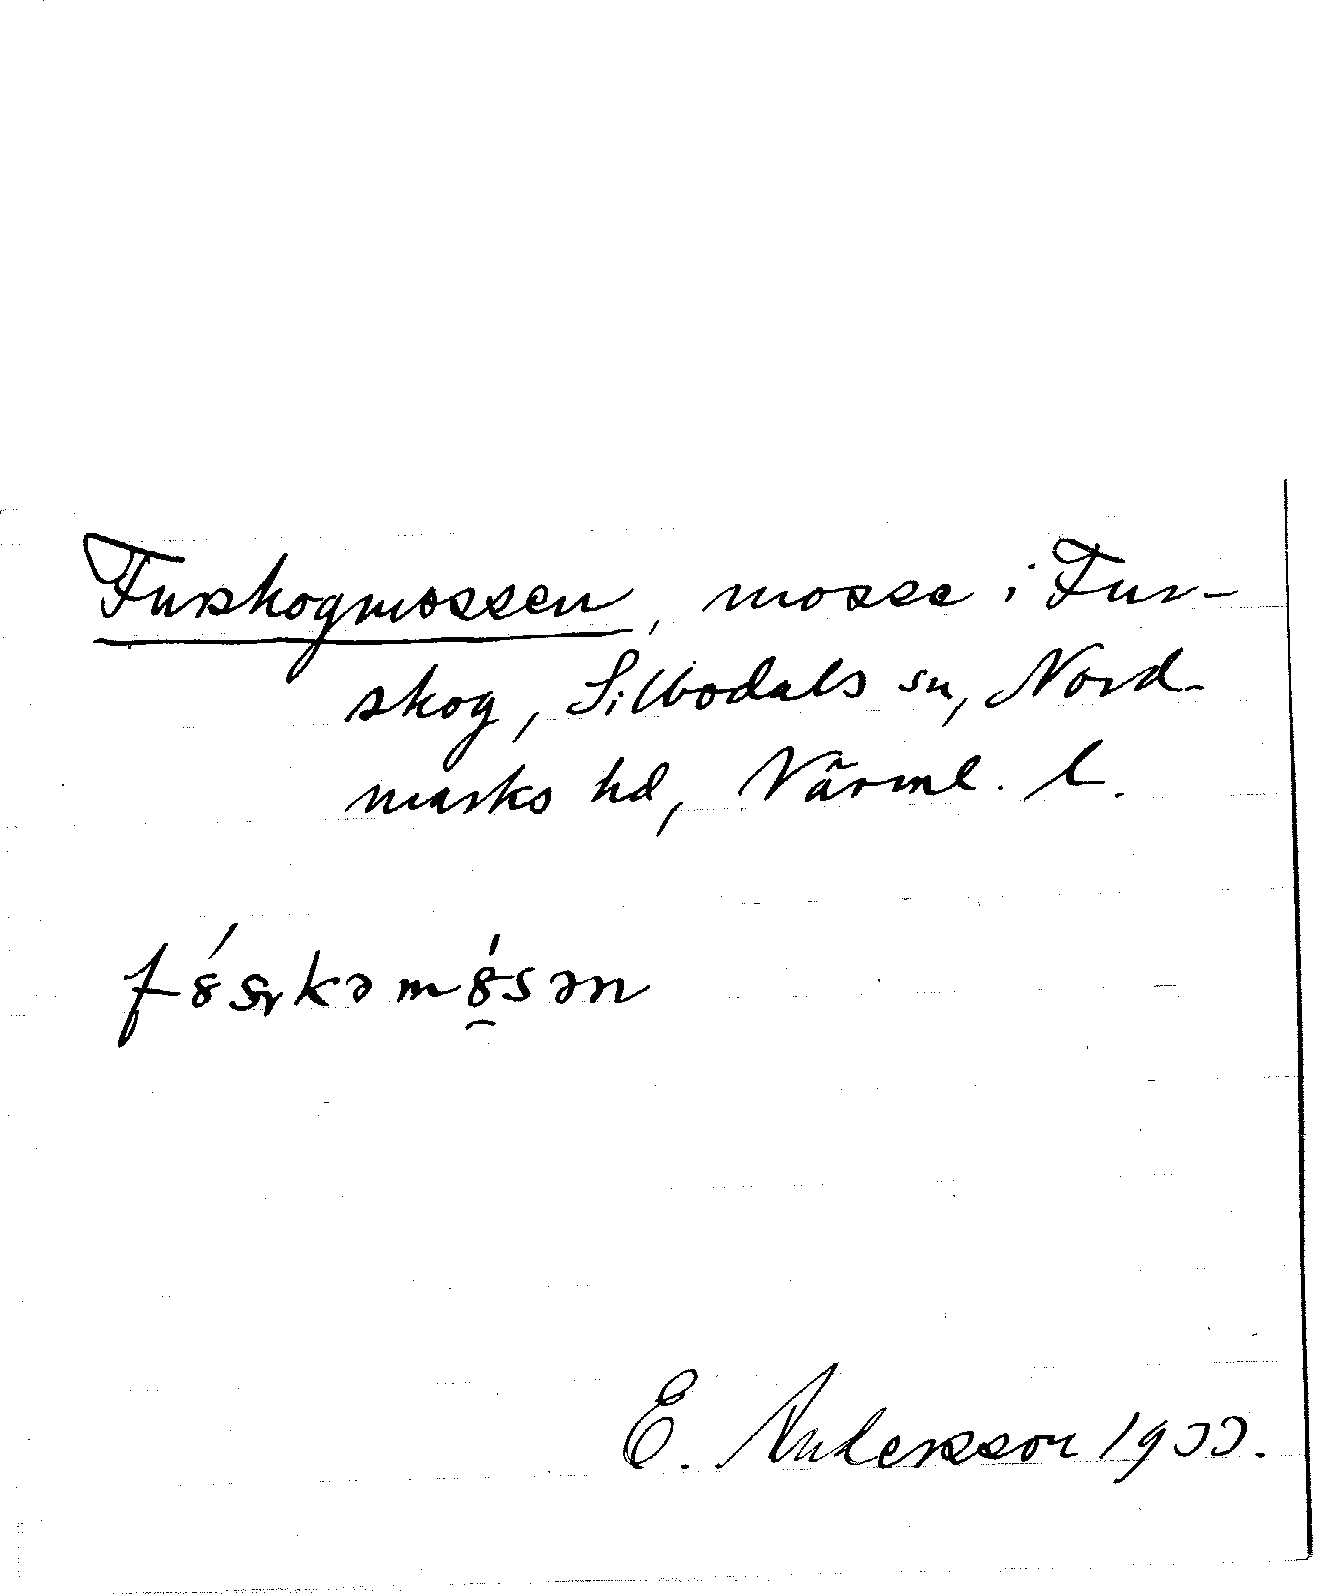 Furskogmossen, mosse i Fur-
skog, Silbodals sn, Nord-
marks hd, Värml. l.
E. Andersson 1933.